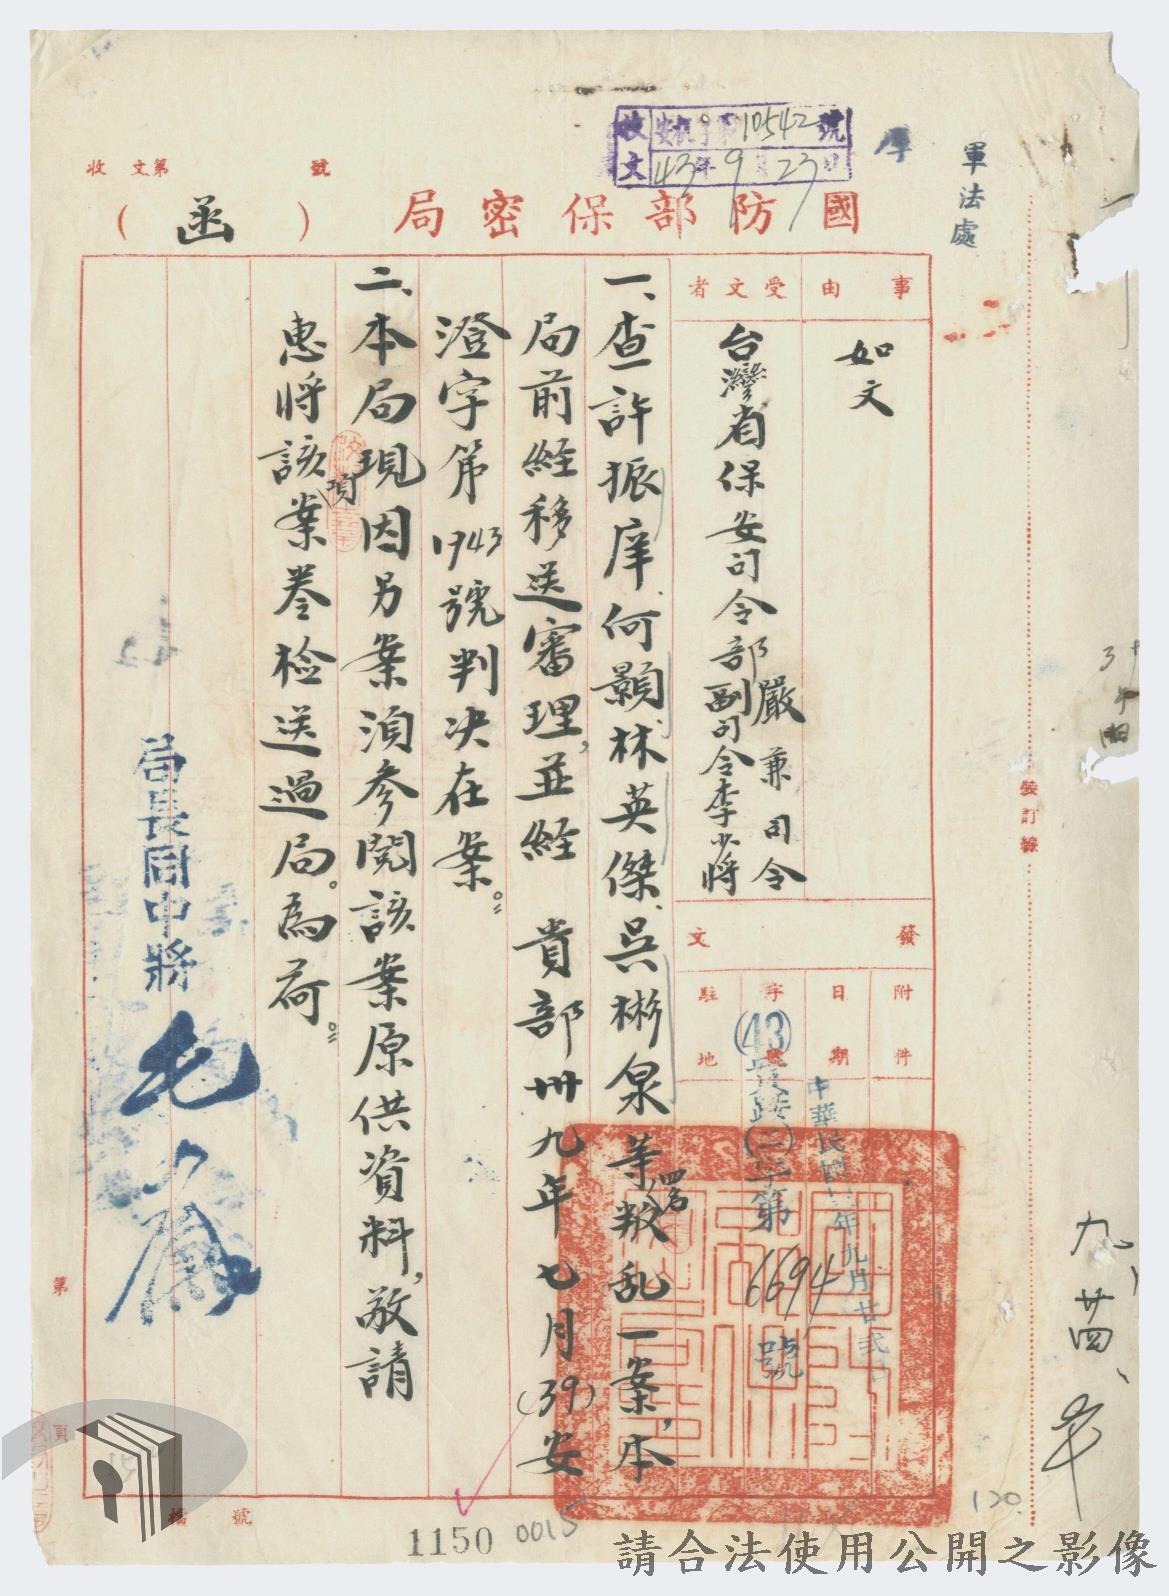 收文 安機字第10542號
43年9月23日
軍法處
收文第 號
國防部保密局(函)
事由
如文
受文者
台灣省保安司令部嚴兼司令
副司令李少將
發文
附件
日期
中華民國 年九月廿貳
字號
(43)
(二)字第6694號
駐地
一、查許振庠、何顯、林英傑、吳彬泉等四名叛乱一案,本
局前經移送審理,並經 貴部卅九年七月(39)安
澄字第1943號判决在案。
二、本局現因另案須參閱該案原供資料,敬請
惠將該項案卷檢送過局。為荷。
局長同中將毛
裝訂線
第
頁
檔 號
九、
120
1150
0015
請合法使用公開之影像